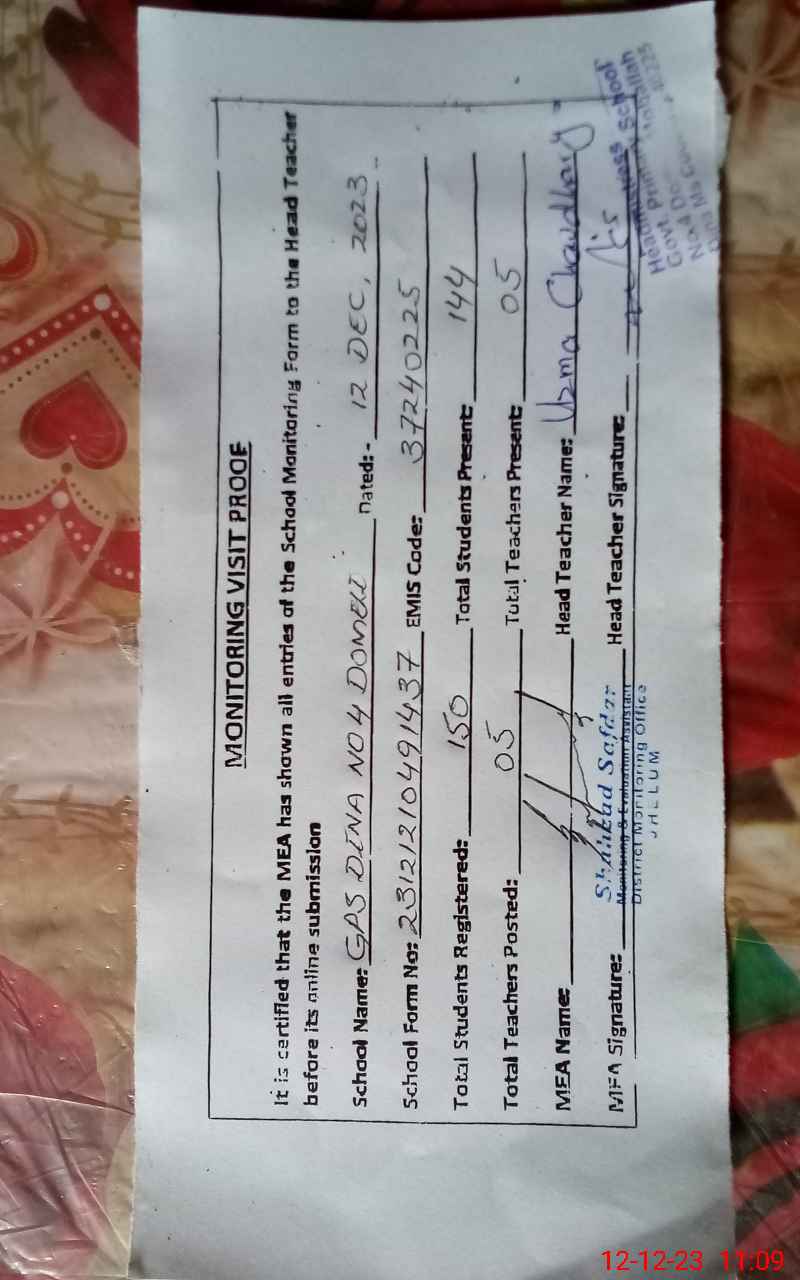 MONITORING VISIT PROOF
It is certified that the MEA has shown all entries of the School Monitoring Form to the Head Teacher
before its online submission
School Name: GPS DINA NO 4 DOMELI Dated: - 12 DEC, 2023
School Form No: 23121210491437 EMIS Code: 37240225
Total Students Registered: 150 Total Students Present: 144
Total Teachers Posted: 05 Total Teachers Present: 05
MEA Name: Head Teacher Name: Uzma Chaudhary
MEA Signature: Head Teacher Signature:
Shahzad Safdar
Monitoring & Evaluation Assistant
District Monitoring Office
JHELUM
Headmistress
Govt. Primary School
No.4
12-12-23 11:09